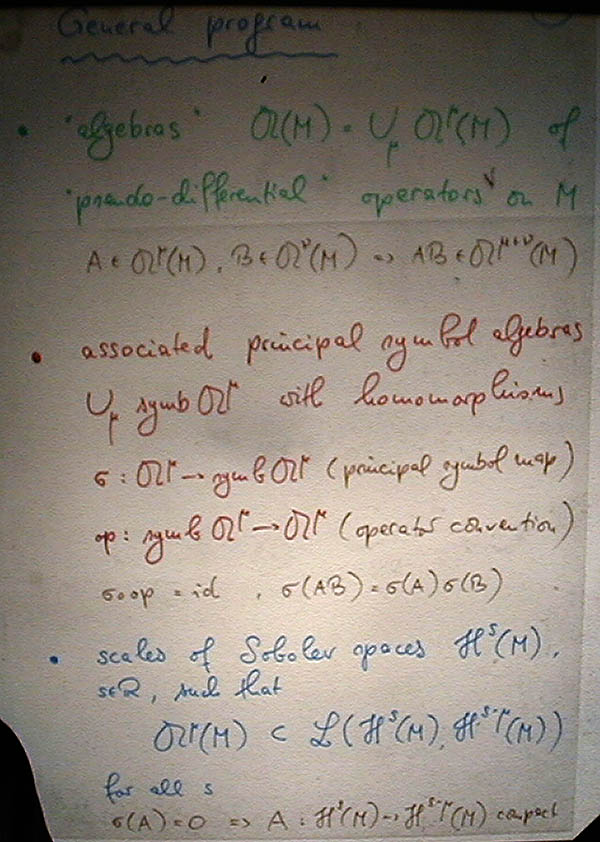 General program
• "algebras" 𝔄(M) = ∪_μ 𝔄^μ(M) of
"pseudo-differential" operators on M
A ∈ 𝔄^μ(M), B ∈ 𝔄^ν(M) => AB ∈ 𝔄^{μ+ν}(M)
• associated principal symbol algebras
∪_μ symb 𝔄^μ with homomorphisms
σ : 𝔄^μ → symb 𝔄^μ (principal symbol map)
op : symb 𝔄^μ → 𝔄^μ (operator convention)
σ∘op = id , σ(AB) = σ(A)σ(B)
• scales of Sobolev spaces H^s(M),
s∈R, such that
𝔄^μ(M) ⊂ L(H^s(M), H^{s-μ}(M))
for all s
σ(A) = 0 => A : H^s(M) → H^{s-μ}(M) compact